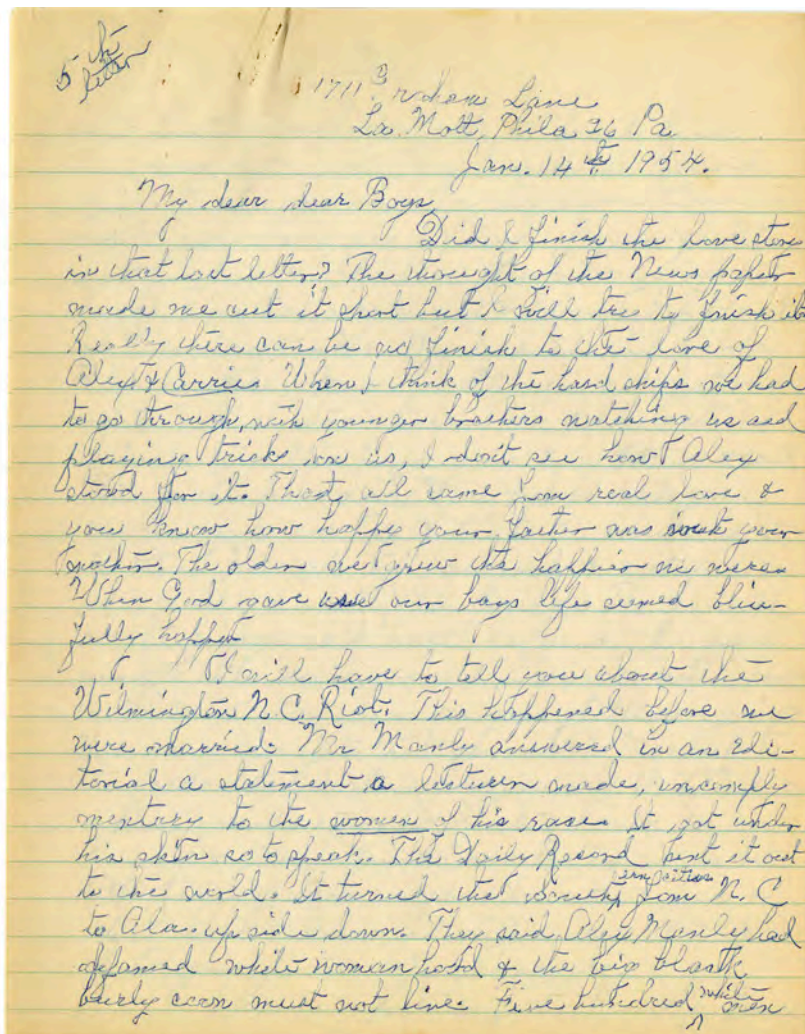 5 th
letter
1711 Graham Lane
La Mott, Phila 26 Pa.
Jan. 14th 1954.
My dear dear Boys,
Did I finish the love story
in that last letter? The thought of the News paper
made me cut it short but I will try to finish it
Really there can be no finish to the love of
Alex & Carrie. When I think of the hard ships we had
to go through, with younger brothers watching us and
playing tricks on us, I don't see how Alex
stood for it. That all came from real love &
you know how happy your father was with your
mother. The older we grew the happier we were.
When God gave us our boys life seemed bliss-
fully happy
I will have to tell you about the
Wilmington N.C. Riot. This happened before we
were married. Mr Manly answered in an edi-
torial a statement, a lecturer made, uncomply
mentary to the women of his race. It got under
his skin so to speak. The Daily Record sent it out
to the world. It turned the southern cities from N.C
to Ala. up side down. They said Alex Manly had
defamed white womanhood & the big black
burly coon must not live. Five hundred white men